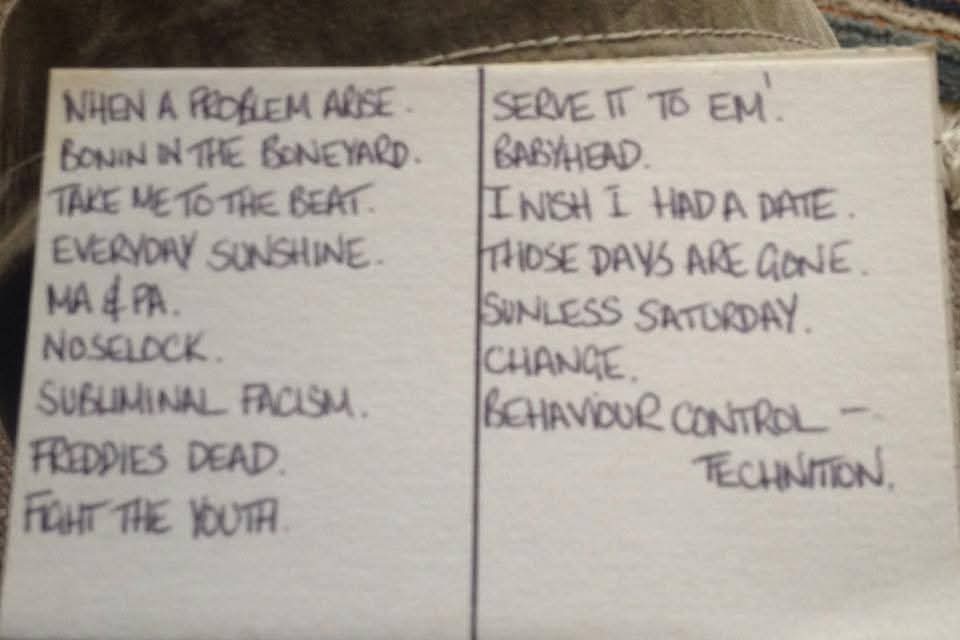 WHEN A PROBLEM ARISE.
BONIN IN THE BONEYARD.
TAKE ME TO THE BEAT.
EVERYDAY SUNSHINE.
MA & PA.
NOSELOCK.
SUBLIMINAL FACISM.
FREDDIES DEAD.
FIGHT THE YOUTH.
SERVE IT TO EM'.
BABYHEAD.
I WISH I HAD A DATE.
THOSE DAYS ARE GONE.
SUNLESS SATURDAY.
CHANGE.
BEHAVIOUR CONTROL –
TECHNITION.